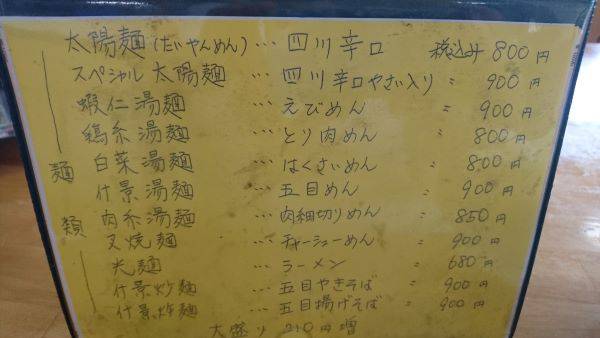 太陽麺(だいやんめん)… 四川辛口 税込み 800円
スペシャル太陽麺 … 四川辛口やさい入り 〃 900円
蝦仁湯麺 … えびめん 〃 900円
鶏糸湯麺 … とり肉めん 〃 800円
白菜湯麺 … はくさいめん 〃 800円
什景湯麺 … 五目めん 〃 900円
肉糸湯麺 … 肉細切りめん 〃 850円
叉焼麺 … チャーシューめん 〃 900円
光麺 … ラーメン 〃 680円
什景炒麺 … 五目やきそば 〃 900円
什景炸麺 … 五目揚げそば 〃 900円
大盛り 210円増
麺類